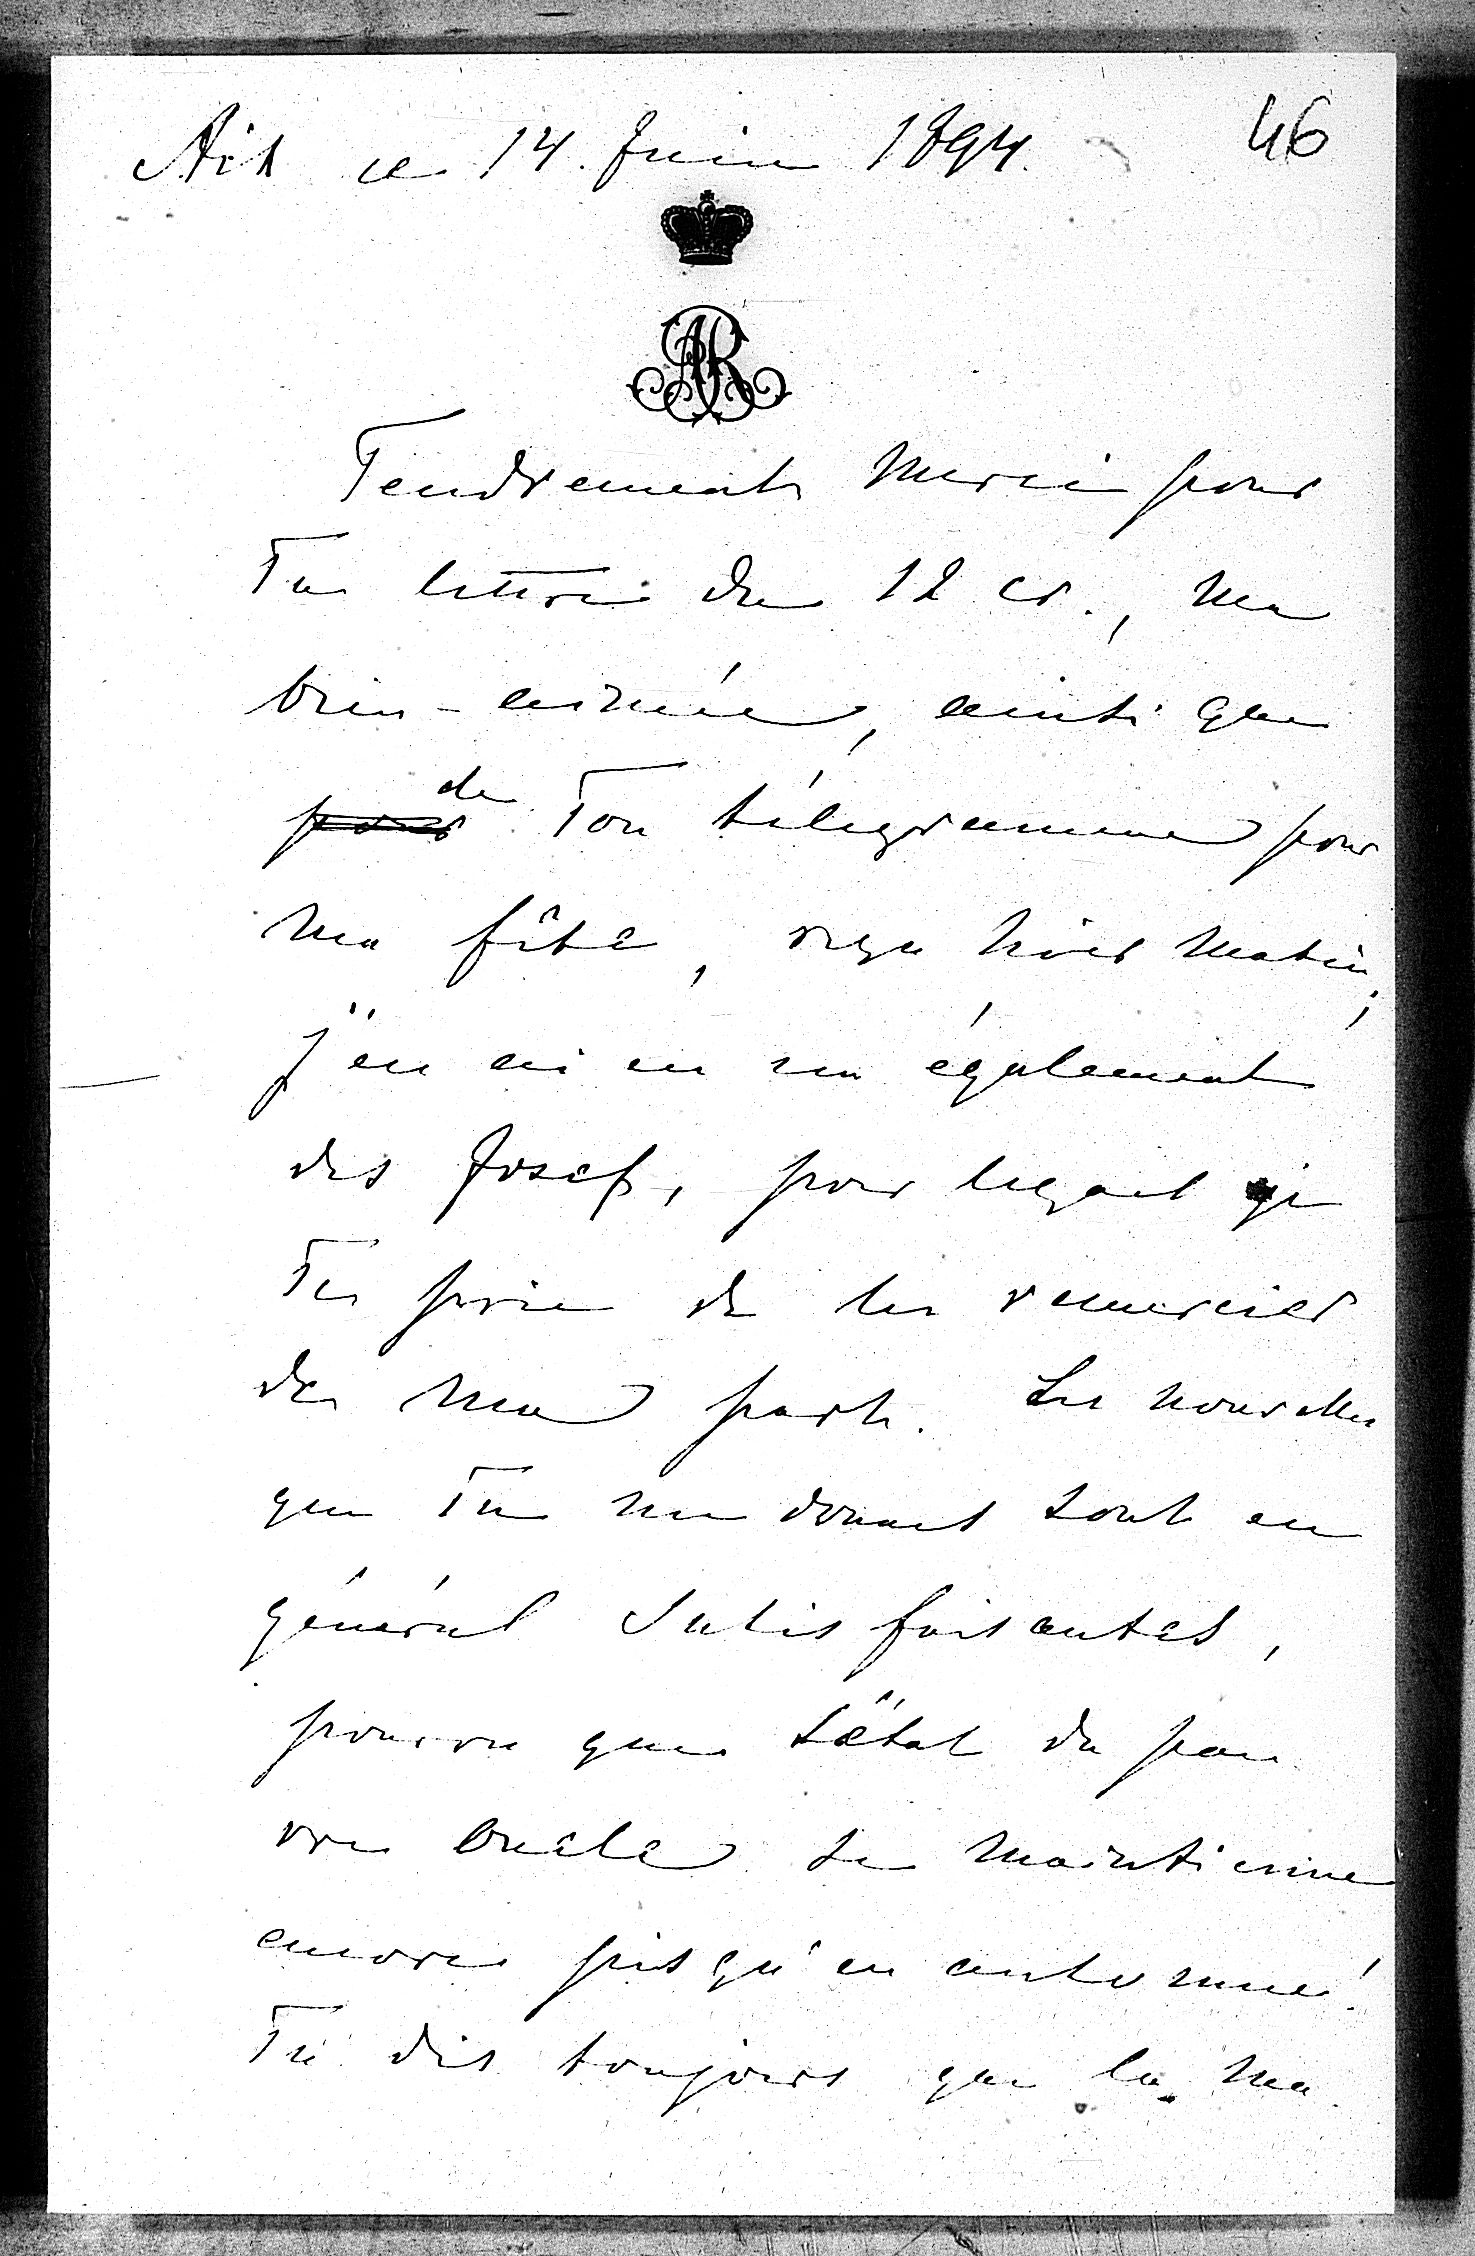 Aix ce 14. Juin 1894. 46
AR
Tendrement merci pour
Ta lettre du 12 cr., ma
bien-aimée, ainsi que
de
pour Ton télégramme pour
ma fête, reçu hier matin;
j'en ai eu un également
des Josef, pour lequel je
Te prie de les remercier
de ma part. Les nouvelles
que Tu me donnes sont en
général satisfaisantes,
pourvu que l'état du pau
vre oncle se maintienne
encore jusqu'en automne!
Tu dis toujours que la ma